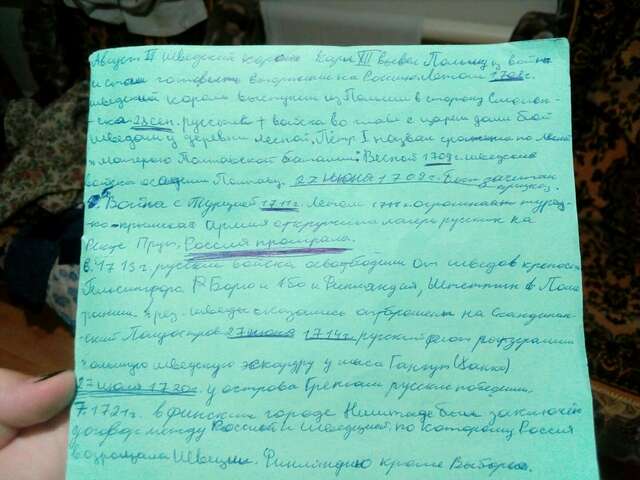 Август II шведский король Карл XII вывел Польшу из войны
и стал готовить вторжение на Россию. Летом 1708г.
шведский король выступил из Польши в сторону Смолен-
-ска. 28 сен. русские войска во главе с царем дали бой
шведам у деревни Лесной. Пётр I назвал сражение по Лесной
"матерью Полтавской баталии". Весной 1709г. шведские
войска осадили Полтаву. 27 июня 1709г.
Война с Турцией 1711г. Летом 1711г. огромная турец-
ко-крымская армия окружила лагерь русских на
реке Прут. Россия проиграла.
В 1713г. русские войска освободили от шведов крепости
Гельсингфорс Або и Финляндия, Штеттин в Поме
рании шведы оказались отброшены на Скандинав-
ский Полуостров 27 июля 1714г. русский флот разгромил
большую шведскую эскадру у мыса Гангут (Ханко)
27 июля 1720г. у острова Гренгам русские победили.
7. 1721г. в финском городе Ништаде был заключён
договор между Россией и Швецией, по которому Россия
возвращала Швеции. Финляндию кроме Выборга.